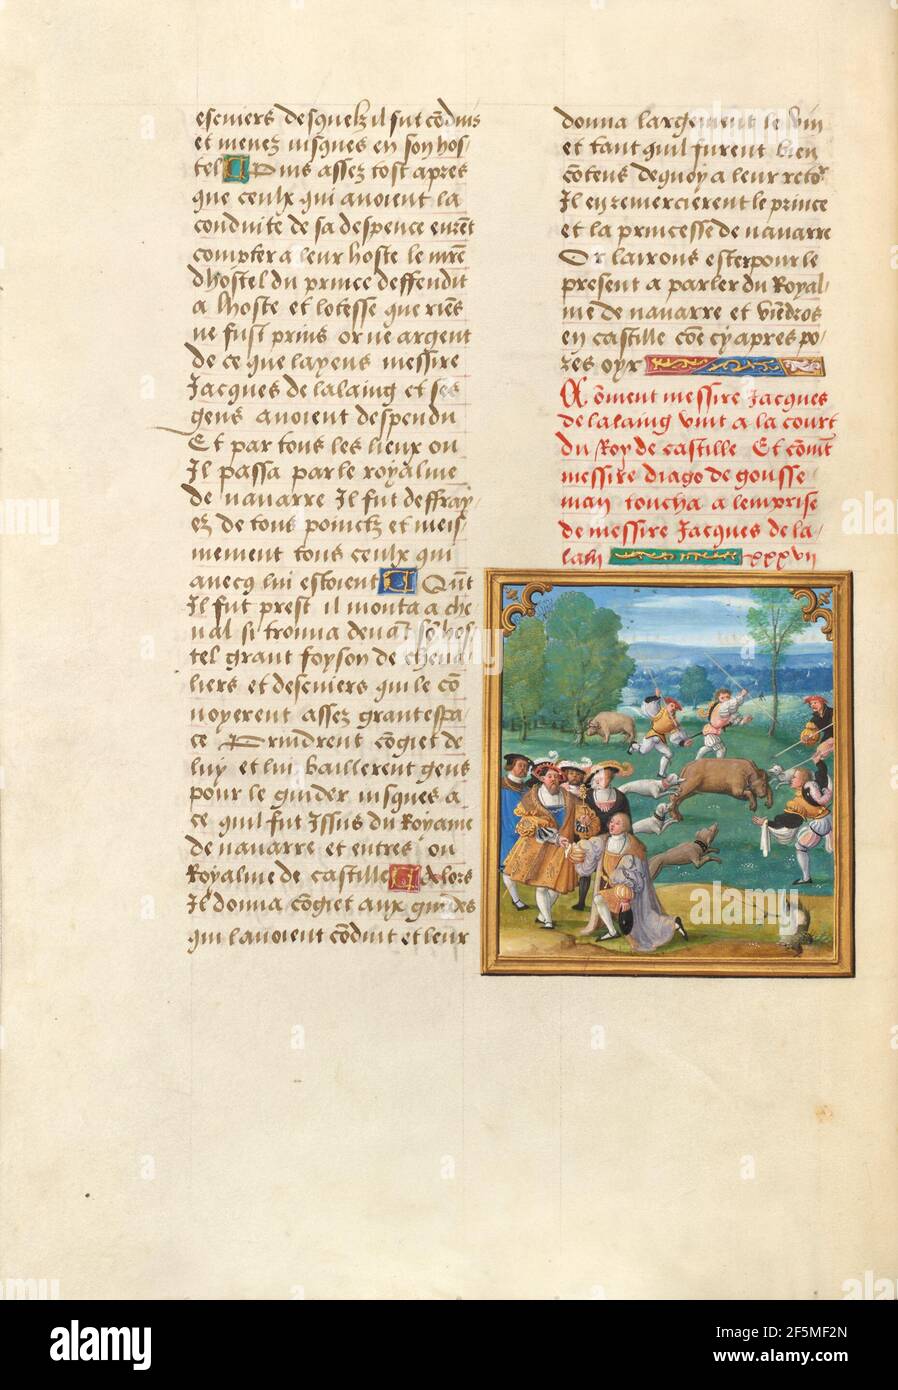 escuiers desquelz il fut cōduis
et menez iusques en son hos-
tel Puis assez tost apres
que ceulx qui auoient la
conduite de sa despence eurēt
compter a leur hoste le mrē
dhostel du prince deffendit
a lhoste et lotesse que riēs
ne fust prins or ne argent
de ce que layens messire
Jacques de lalaing et ses
gens auoient despendu
Et par tous les lieux ou
Il passa par le royalme
de nauarre Il fut deffray-
ez de tous poinctz et meis-
mement tous ceulx qui
auecq lui estoient Quāt
Il fut prest il monta a che
ual si trouua deuāt sō hos-
tel grant foyson de cheua
liers et descuiers qui le cō
uoyerent assez grant espa-
ce Prindrent cōgiet de
luy et lui baillerent gens
pour le guider iusques a
ce quil fut Issus du Royame
de nauarre et entres ou
Royalme de castille Alors
Il donna cōgiet aux guides
qui lauoient cōduit et leur
donna largement le vin
et tant quil furent bien
cōtens dequoy a leur retor
Il en remercierent le prince
et la princesse de nauarre
Or lairons ester pour le
present a parler du Royal-
me de nauarre et viēdrōs
en castille cōe cy apres po-
rēs oyr
Cōment messire Jacques
de lalaing vint a la court
du Roy de castille Et cōmēt
messire diago de gousse
man toucha a lemprise
de messire Jacques de la-
lain xxxvii
alamy
Image ID: 2F5MF2N
www.alamy.com